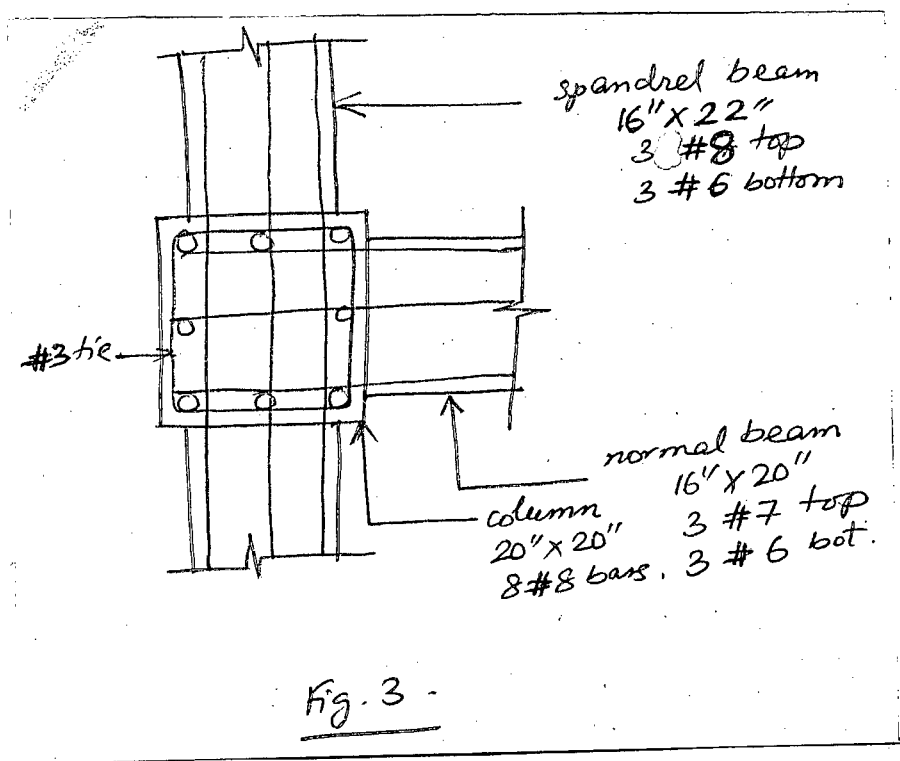 spandrel beam
16"X22"
3 #8 top
3 #6 bottom
#3 tie
normal beam
16"X20"
3 #7 top
3 #6 bot.
column
20"X20"
8#8 bars.
Fig. 3.